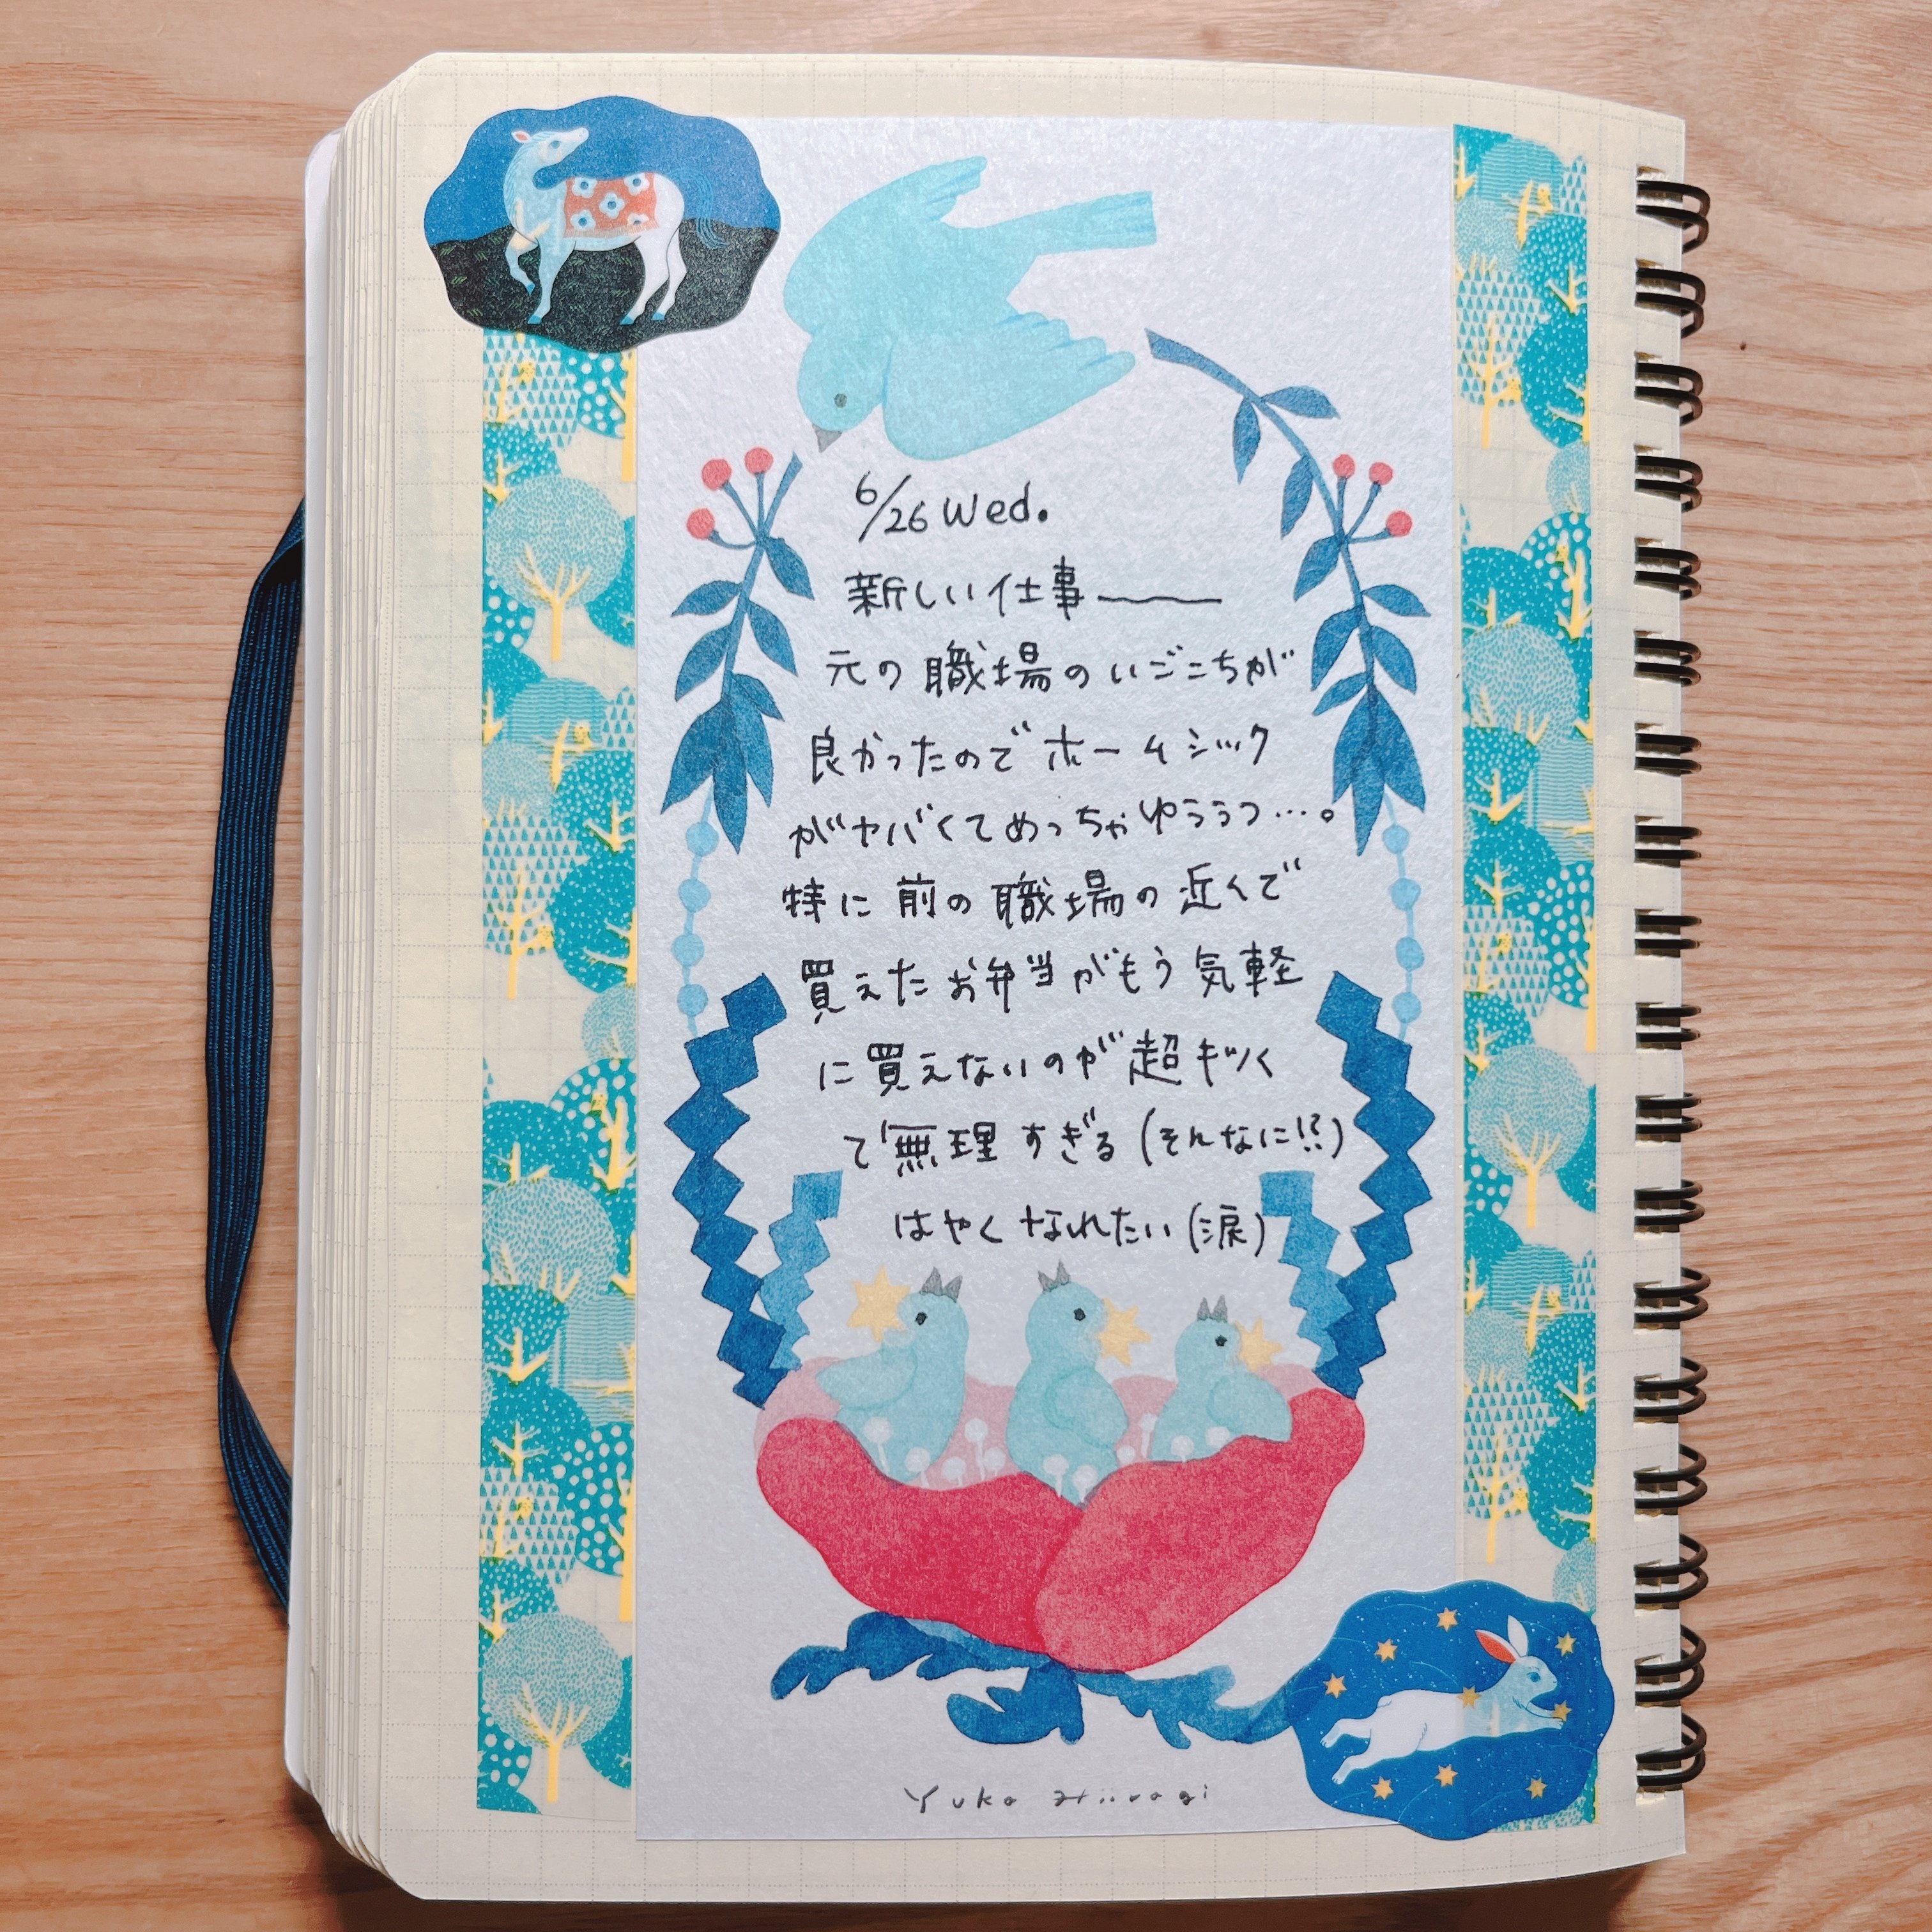 6/26 Wed.
新しい仕事――
元の職場のいごこちが
良かったのでホームシック
がヤバくてめっちゃゆううつ…。
特に前の職場の近くで
買えたお弁当がもう気軽
に買えないのが超キツく
て無理すぎる(そんなに!?)
はやくなれたい(涙)
Yuko Hiiragi